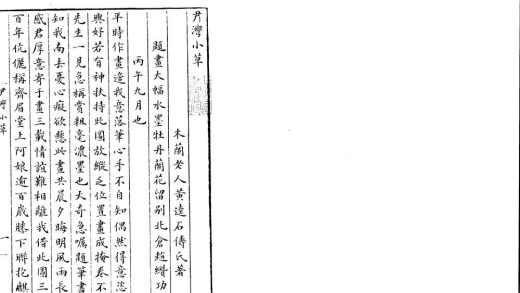 尹灣小草
木蘭女人黃遠石儔氏著
題畫大幅水墨牡丹蘭花留別北倉趙纘功
丙午九月也
平時作畫達我意落筆心手不自知偶然得意恣
興好若有神扶持此圖放縱乏位置畫成掩卷不
先生一見急稱賞粗毫濃墨也大奇急囑隨筆書
知我南去憂心癡欲懸此畫共晨夕晦明風雨長
感君厚意寄于畫三載情誼難相離我借此圖三
百年伉儷稱齊眉堂上阿娘逾百歲膝下聯抱麒
尹灣小草
一